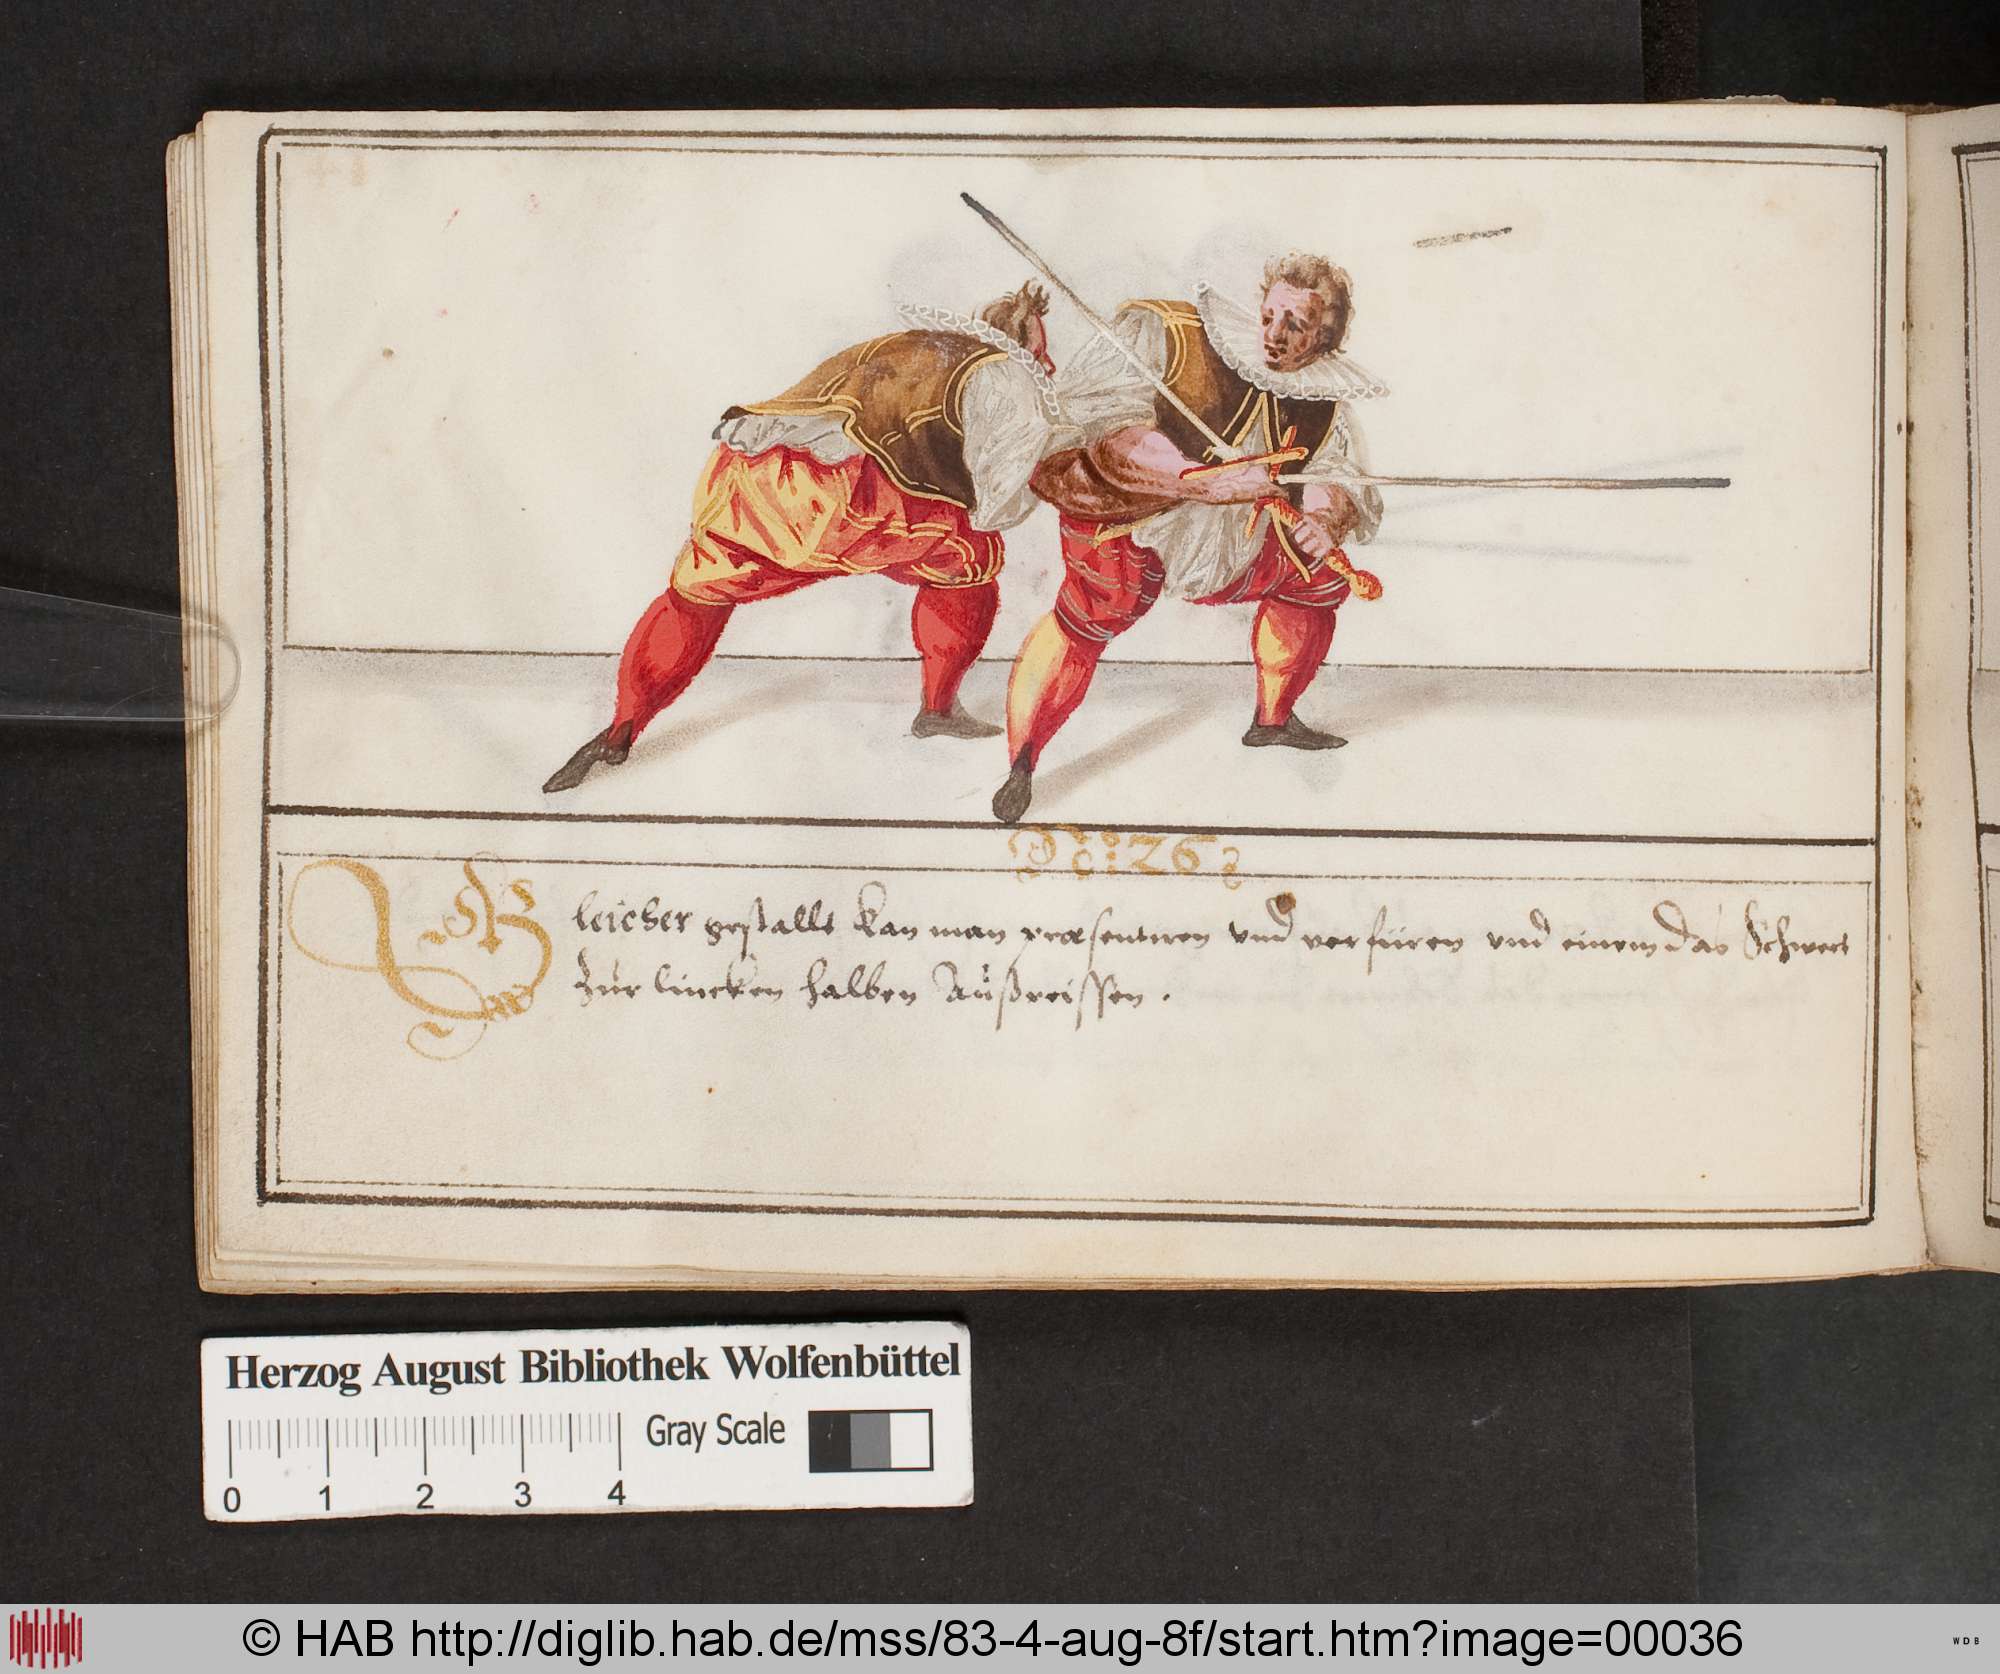 No: 26
Gleicher gestallt kan man præsentiren vnd verfüren vnd einem das Schwert
Zur lincken halben Außreissen.
Herzog August Bibliothek Wolfenbüttel
Gray Scale
0 1 2 3 4
© HAB http://diglib.hab.de/mss/83-4-aug-8f/start.htm?image=00036
WDB